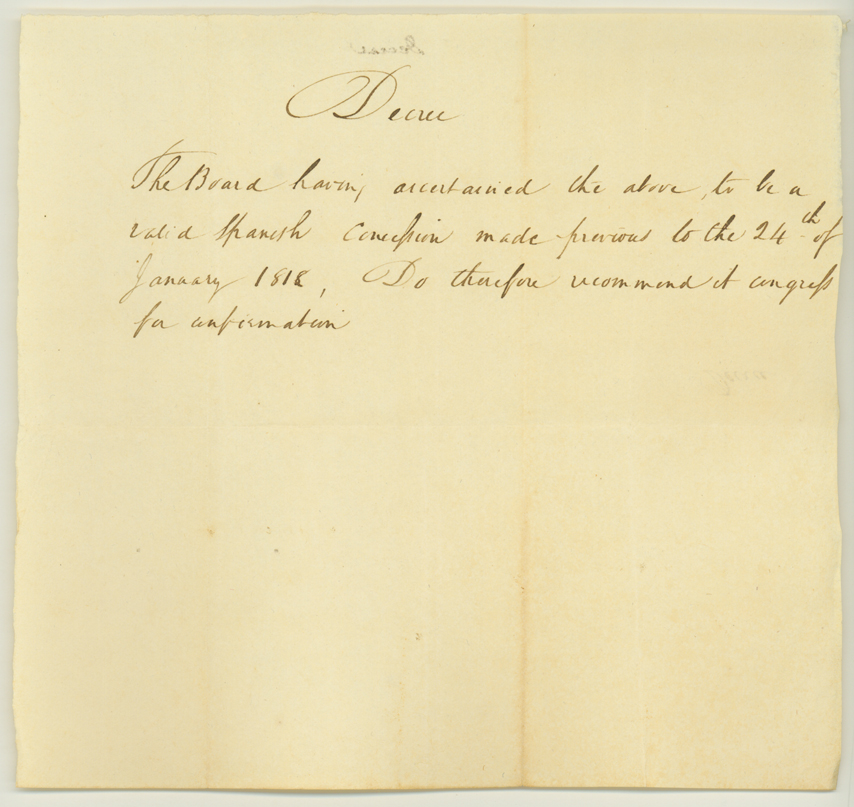 Decree
The Board having ascertained the above, to be a
valid Spanish Concession made previous to the 24th of
January 1818, Do therefore recommend it congress
for confirmation